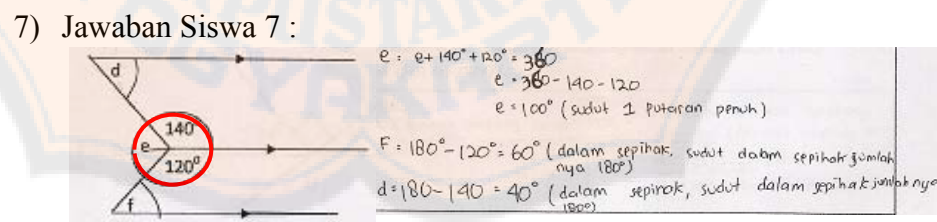 7) Jawaban Siswa 7 :
d
140
e
120⁰
f
e : e + 140° + 120° = 360
e = 360 - 140 - 120
e = 100° (sudut 1 putaran penuh)
F = 180° - 120° = 60° (dalam sepihak, sudut dalam sepihak jumlah
nya 180°)
d = 180 - 140 = 40° (dalam sepihak, sudut dalam sepihak jumlahnya
180°)